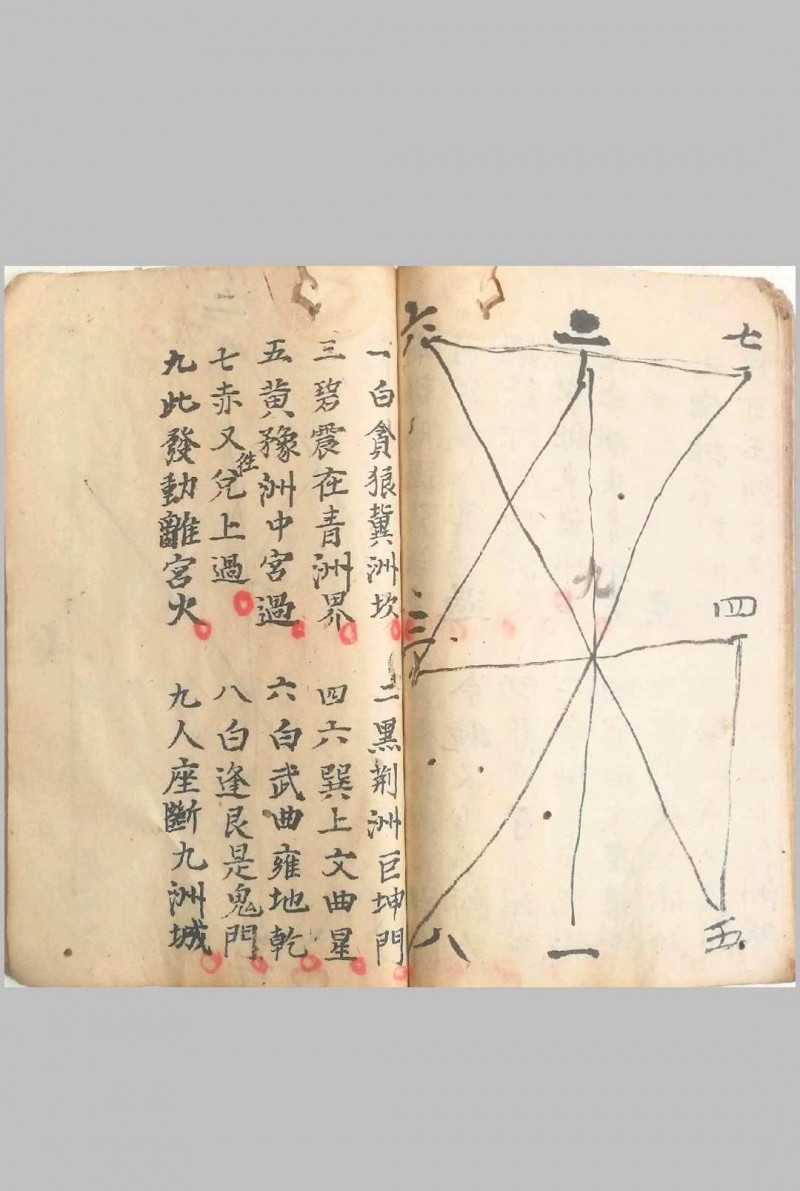 六 二 七
九
三 四
八 一 五
一白貪狼冀洲坎
二黑荆洲巨坤門
三碧震在青洲界
四六巽上文曲星
五黄豫洲中宮過
六白武曲雍地乾
七赤又兌上過
往
八白逢艮是鬼門
九此發動離宮火
九人座斷九洲城